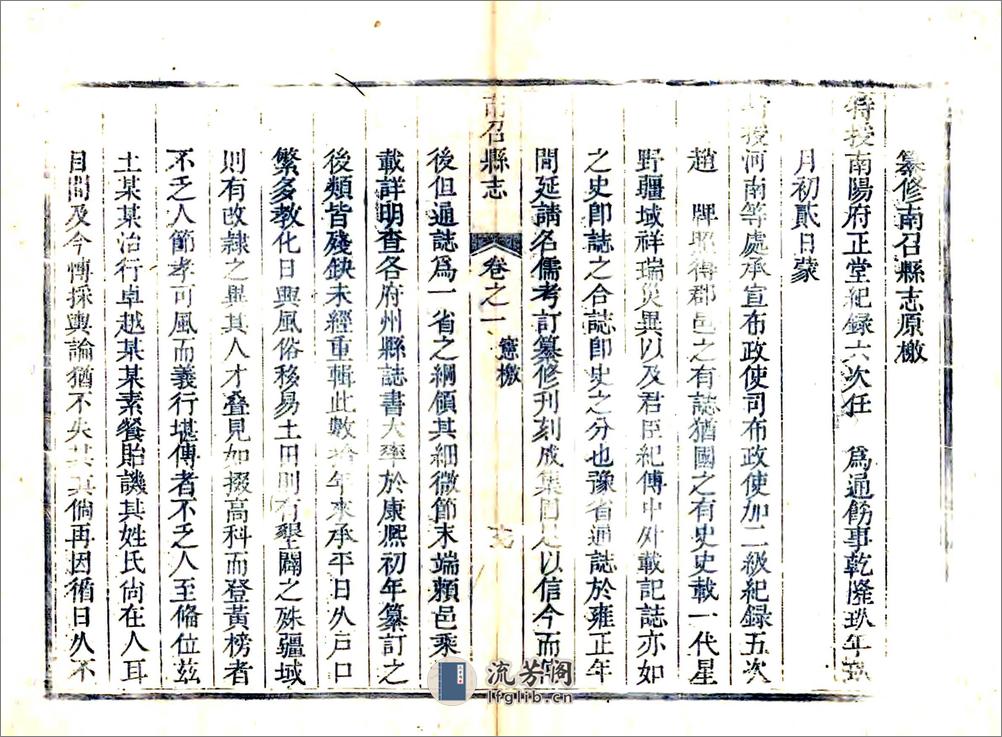 纂修南召縣志原檄
特授南陽府正堂紀録六次任 爲通飭事乾隆玖年
月初貳日蒙
授河南等處承宣布政使司布政使加二級紀録五次
趙 牌照得郡邑之有誌猶國之有史史載一代星
野疆域祥瑞災異以及君臣紀傳中外載記誌亦如
之史卽誌之合誌卽史之分也豫省通誌於雍正年
間延請名儒考訂纂修刋刻成集固足以信今而
南召縣志 卷之一 憲檄
後但通誌爲一省之綱領其細微節末端頼邑乘
載詳明查各府州縣誌書大率於康熙初年纂訂之
後類皆殘缺未經重輯此數拾年來承平日久戸口
繁多教化日興風俗移易土田則有墾闢之殊疆域
則有改隸之異其人才叠見如掇高科而登黃榜者
不乏人節孝可風而義行堪傳者不乏人至俻位兹
土某某治行卓越某某素餐貽譏其姓氏尙在人耳
目間及今愽採輿論猶不失其真倘再因循日久不
流芳阁
lfglib.cn